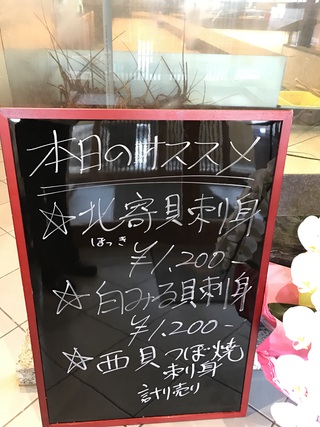 本日のオススメ
☆北寄貝刺身
ほっき
¥1,200-
☆白みる貝刺身
¥1,200-
☆西貝つぼ焼
刺身
計り売り